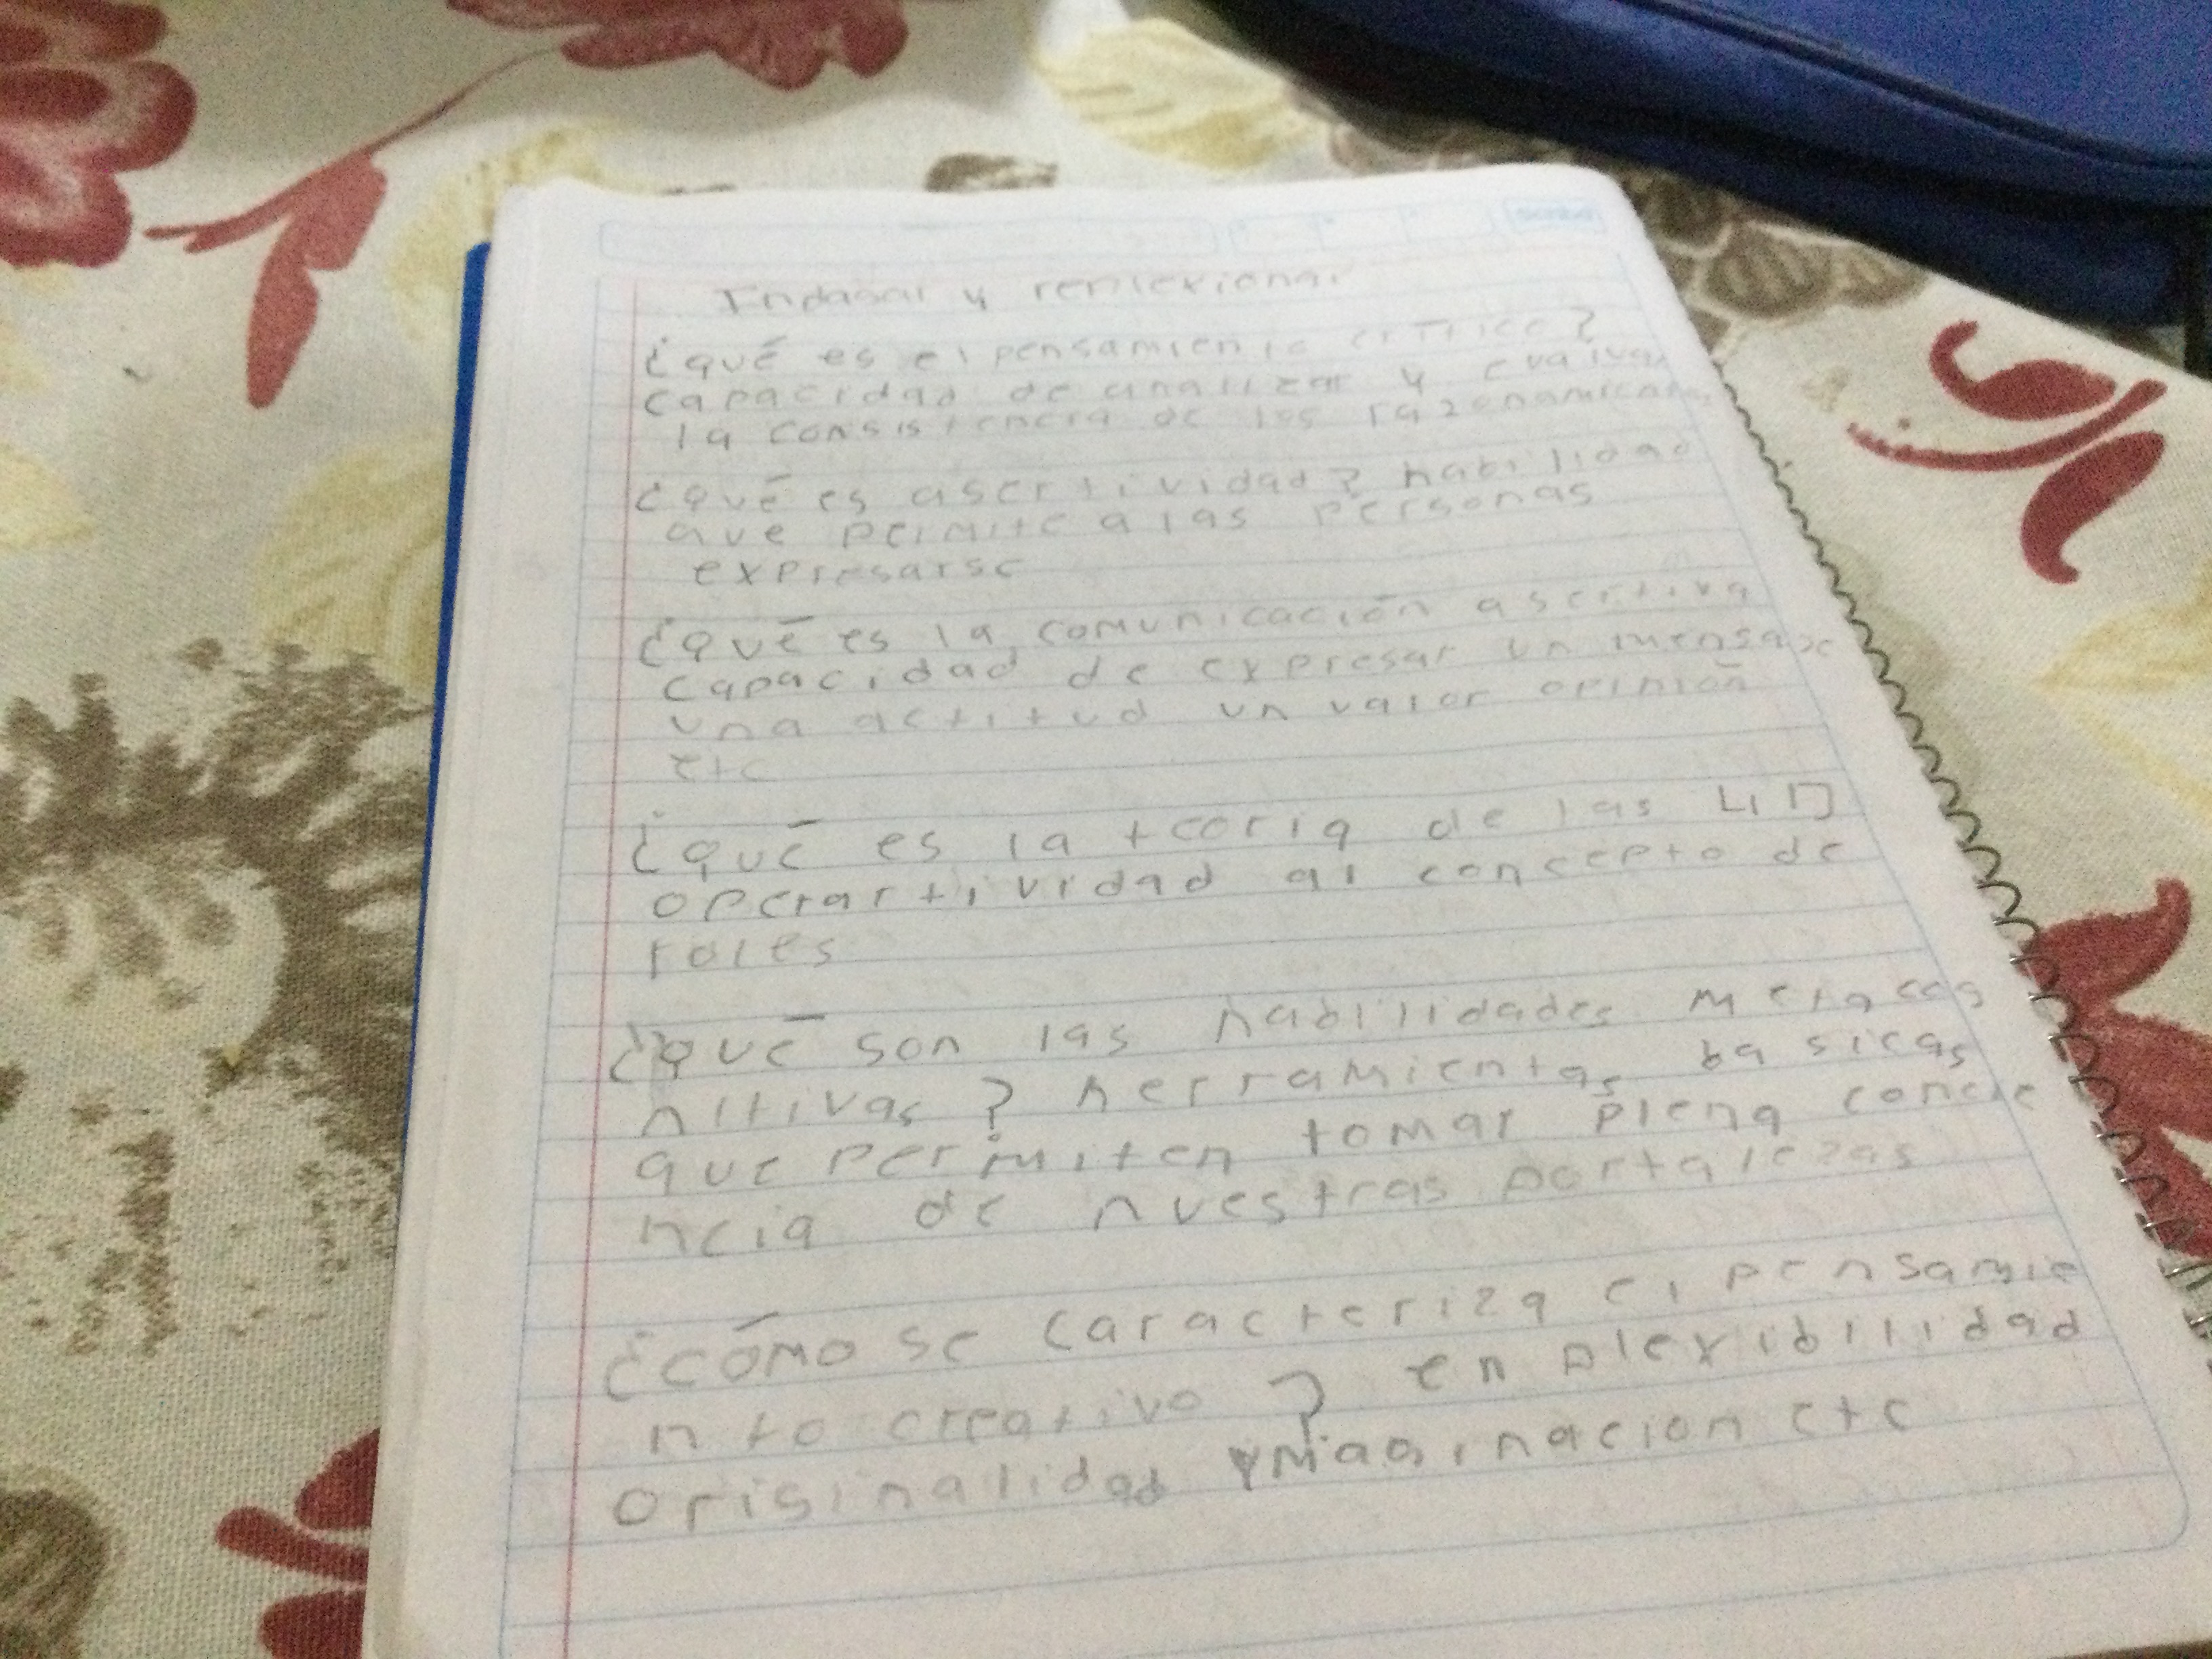 Indagar y reflexionar
¿qué es el pensamiento crítico?
capacidad de analizar y evaluar
la consistencia de los razonamientos
¿qué es asertividad? habilidad
que permite a las personas
expresarse
¿qué es la comunicación asertiva
capacidad de expresar un mensaje
una actitud un valor opinión
etc
¿qué es la teoria de las
operartividad al concepto de
roles
¿qué son las habilidades metacog
nitivas? herramientas basicas
que permiten tomar plena concie
ncia de nuestras fortalezas
¿cómo se caracteriza el pensamie
nto creativo? en flexibilidad
originalidad ymaginacion etc